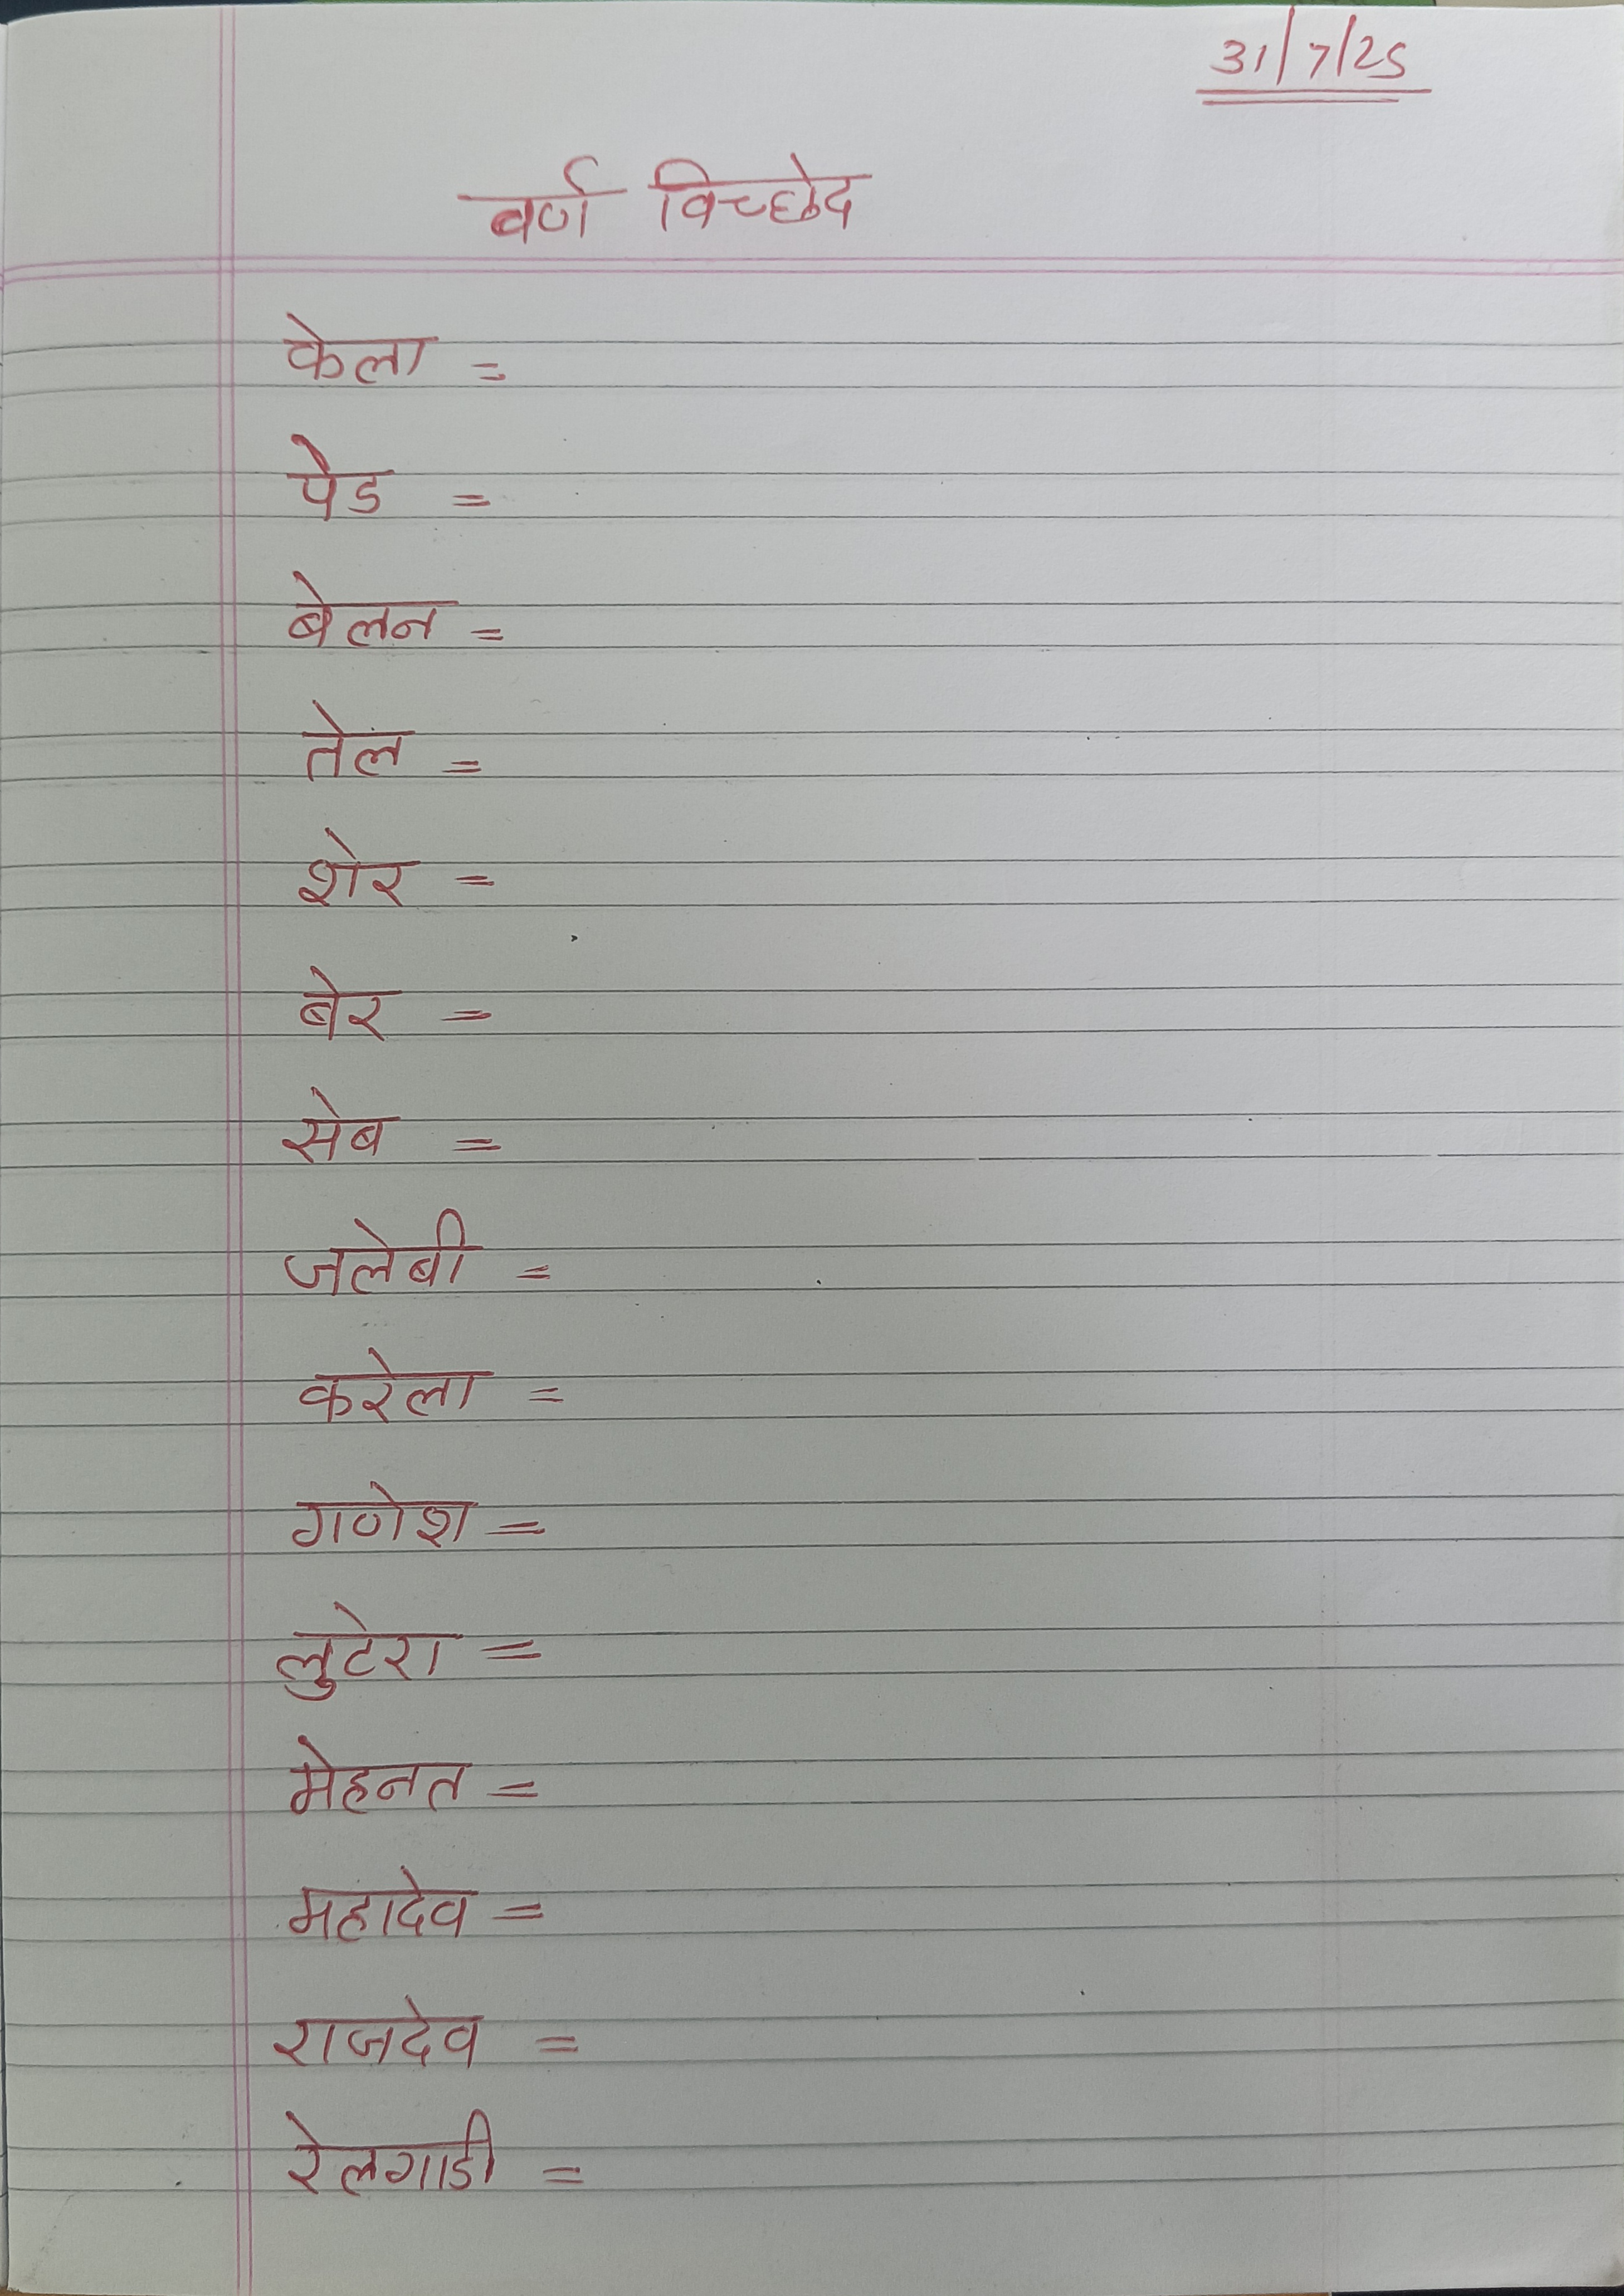 31/7/25
वर्ण विच्छेद
केला =
पेड =
बेलन =
तेल =
शेर =
बेर =
सेब =
जलेबी =
करेला =
गणेश =
लुटेरा =
मेहनत =
महादेव =
राजदेव =
रेलगाडी =